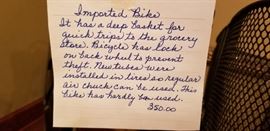 Imported Bike
It has a deep basket for
quick trips to the grocery
store. Bicycle has lock
on back wheel to prevent
theft. New tubes were
installed in tires so regular
air chuck can be used. This
bike has hardly been used.
350.00